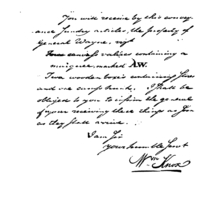 You will receive by this convey-
ance Sundry articles, the property of
General Wayne,
Four canvass valises containing a
marquee marked AW.
Two wooden boxes
and one canvass trunk. I shall be
obliged to you to inform the general
of your receiving these things as soon
as they shall arrive.
I am Sir
Your hum: Servt
Wm Knox